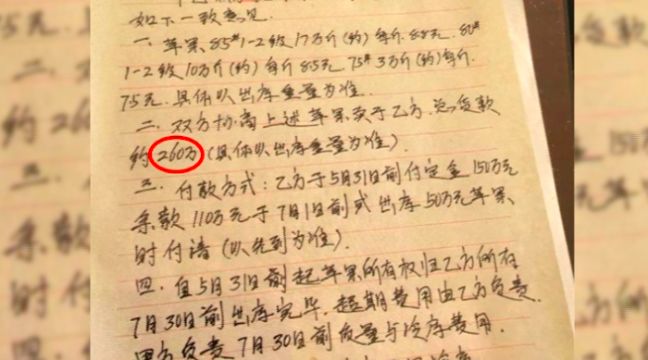 如下一致意见
一、苹果85#1-2级17万斤(约)每斤8.8元.80#
1-2级10万斤(约)每斤8.5元.75#3万斤(约)每斤
7.5元.具体以出库重量为准.
二、双方协商上述苹果卖于乙方.总货款
约260万(具体以出库重量为准).
三、付款方式:乙方于5月31日前付定金150万元
余款110万元于7月1日前或出库50万元苹果
时付清(以先到为准).
四、自5月31日前起苹果所有权归乙方所有
7月30日前出库完毕.超期费用由乙方负责.
甲方负责7月30日前质量与冷库费用.